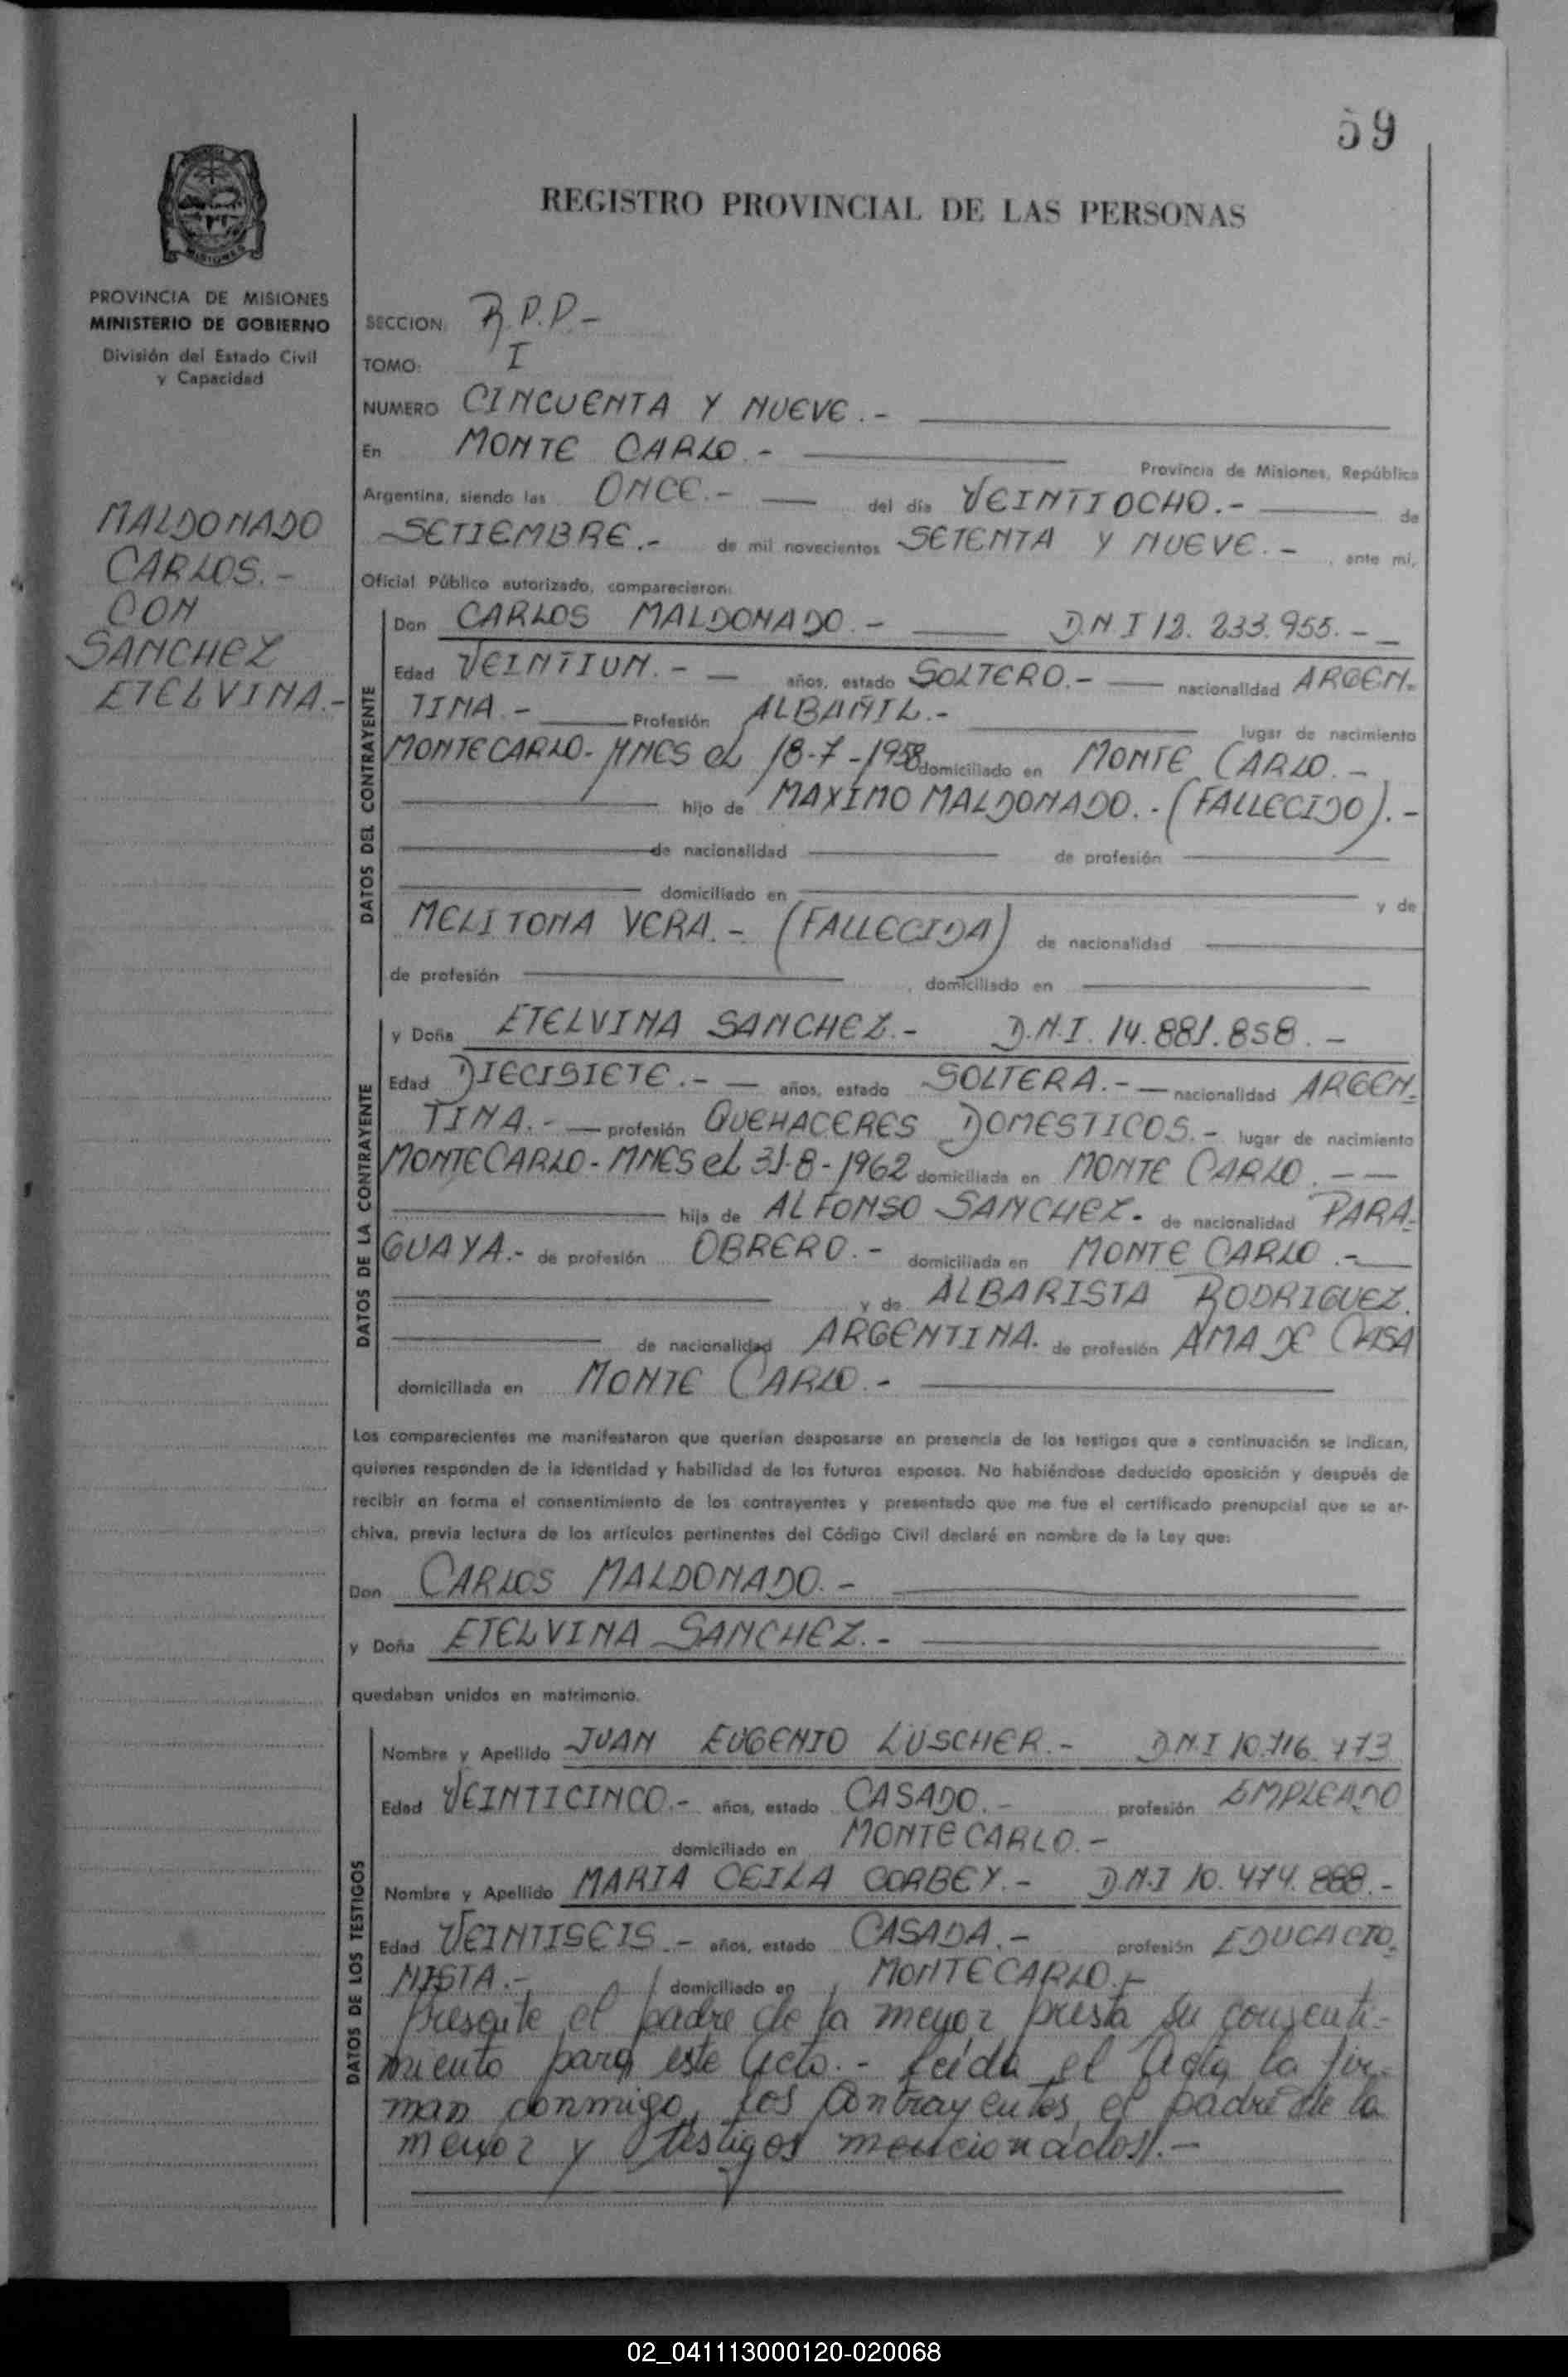 59
REGISTRO PROVINCIAL DE LAS PERSONAS
PROVINCIA DE MISIONES
MINISTERIO DE GOBIERNO
División del Estado Civil
y Capacidad
MALDONADO
CARLOS.-
CON
SANCHEZ
ETELVINA.-
SECCION: R.P.P.-
TOMO: I
NUMERO CINCUENTA Y NUEVE.-
En MONTE CARLO.- Provincia de Misiones, República
Argentina, siendo las ONCE.- del día VEINTIOCHO.- de
SETIEMBRE.- de mil novecientos SETENTA Y NUEVE.- , ante mí,
Oficial Público autorizado, comparecieron:
DATOS DEL CONTRAYENTE
Don CARLOS MALDONADO.- D.N.I 12.233.955.-
Edad VEINTIUN.- años, estado SOLTERO.- nacionalidad ARGEN-
TINA.- Profesión ALBAÑIL.- lugar de nacimiento
MONTECARLO-MNES el 18-7-1958 domiciliado en MONTE CARLO.-
hijo de MAXIMO MALDONADO.-(FALLECIDO).-
de nacionalidad de profesión
domiciliado en y de
MELITONA VERA.- (FALLECIDA) de nacionalidad
de profesión , domiciliado en
DATOS DE LA CONTRAYENTE
y Doña ETELVINA SANCHEZ.- D.N.I. 14.881.858.-
Edad DIECISIETE.- años, estado SOLTERA.- nacionalidad ARGEN-
TINA.- profesión QUEHACERES DOMESTICOS.- lugar de nacimiento
MONTECARLO-MNES el 31-8-1962 domiciliada en MONTE CARLO.--
hija de ALFONSO SANCHEZ- de nacionalidad PARA-
GUAYA.- de profesión OBRERO.- domiciliada en MONTE CARLO.-
y de ALBARISTA RODRIGUEZ.
de nacionalidad ARGENTINA. de profesión AMA DE CASA
domiciliada en MONTE CARLO.-
Los comparecientes me manifestaron que querían desposarse en presencia de los testigos que a continuación se indican,
quienes responden de la identidad y habilidad de los futuros esposos. No habiéndose deducido oposición y después de
recibir en forma el consentimiento de los contrayentes y presentado que me fue el certificado prenupcial que se ar-
chiva, previa lectura de los artículos pertinentes del Código Civil declaré en nombre de la Ley que:
Don CARLOS MALDONADO.-
y Doña ETELVINA SANCHEZ.-
quedaban unidos en matrimonio.
DATOS DE LOS TESTIGOS
Nombre y Apellido JUAN EUGENIO LUSCHER.- D.N.I 10.716.773
Edad VEINTICINCO.- años, estado CASADO.- profesión EMPLEADO
domiciliado en MONTECARLO.-
Nombre y Apellido MARIA CEILA CORBEY.- D.N.I 10.474.888.-
Edad VEINTISEIS.- años, estado CASADA.- profesión EDUCACIO-
NISTA.- domiciliado en MONTECARLO.-
Presente el padre de la menor presta su consenti-
miento para este acto.- Leída el Acta la fir-
man conmigo, los contrayentes, el padre de la
menor y testigos mencionados.-
02_041113000120-020068